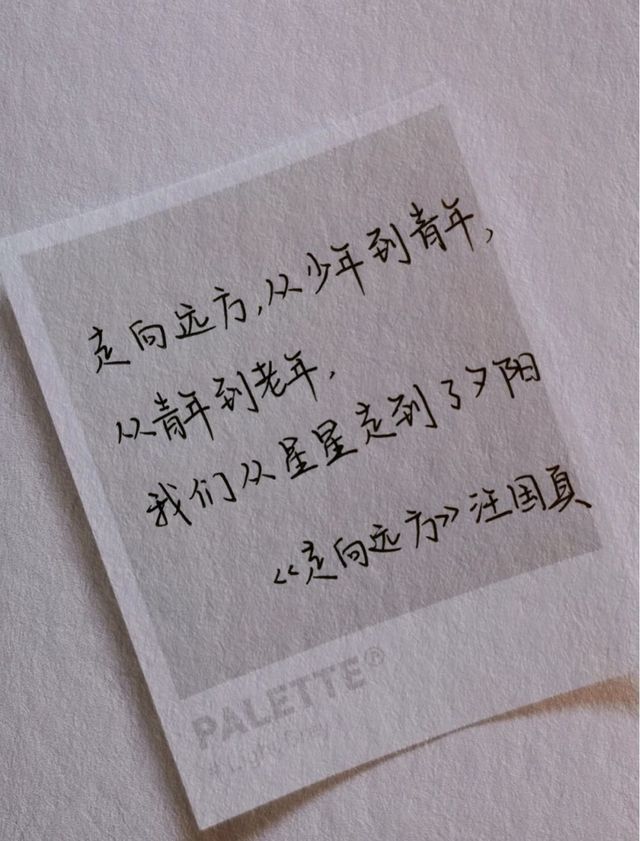 走向远方,从少年到青年,
从青年到老年,
我们从星星走到了夕阳
《走向远方》汪国真
PALETTE®
# Light Grey